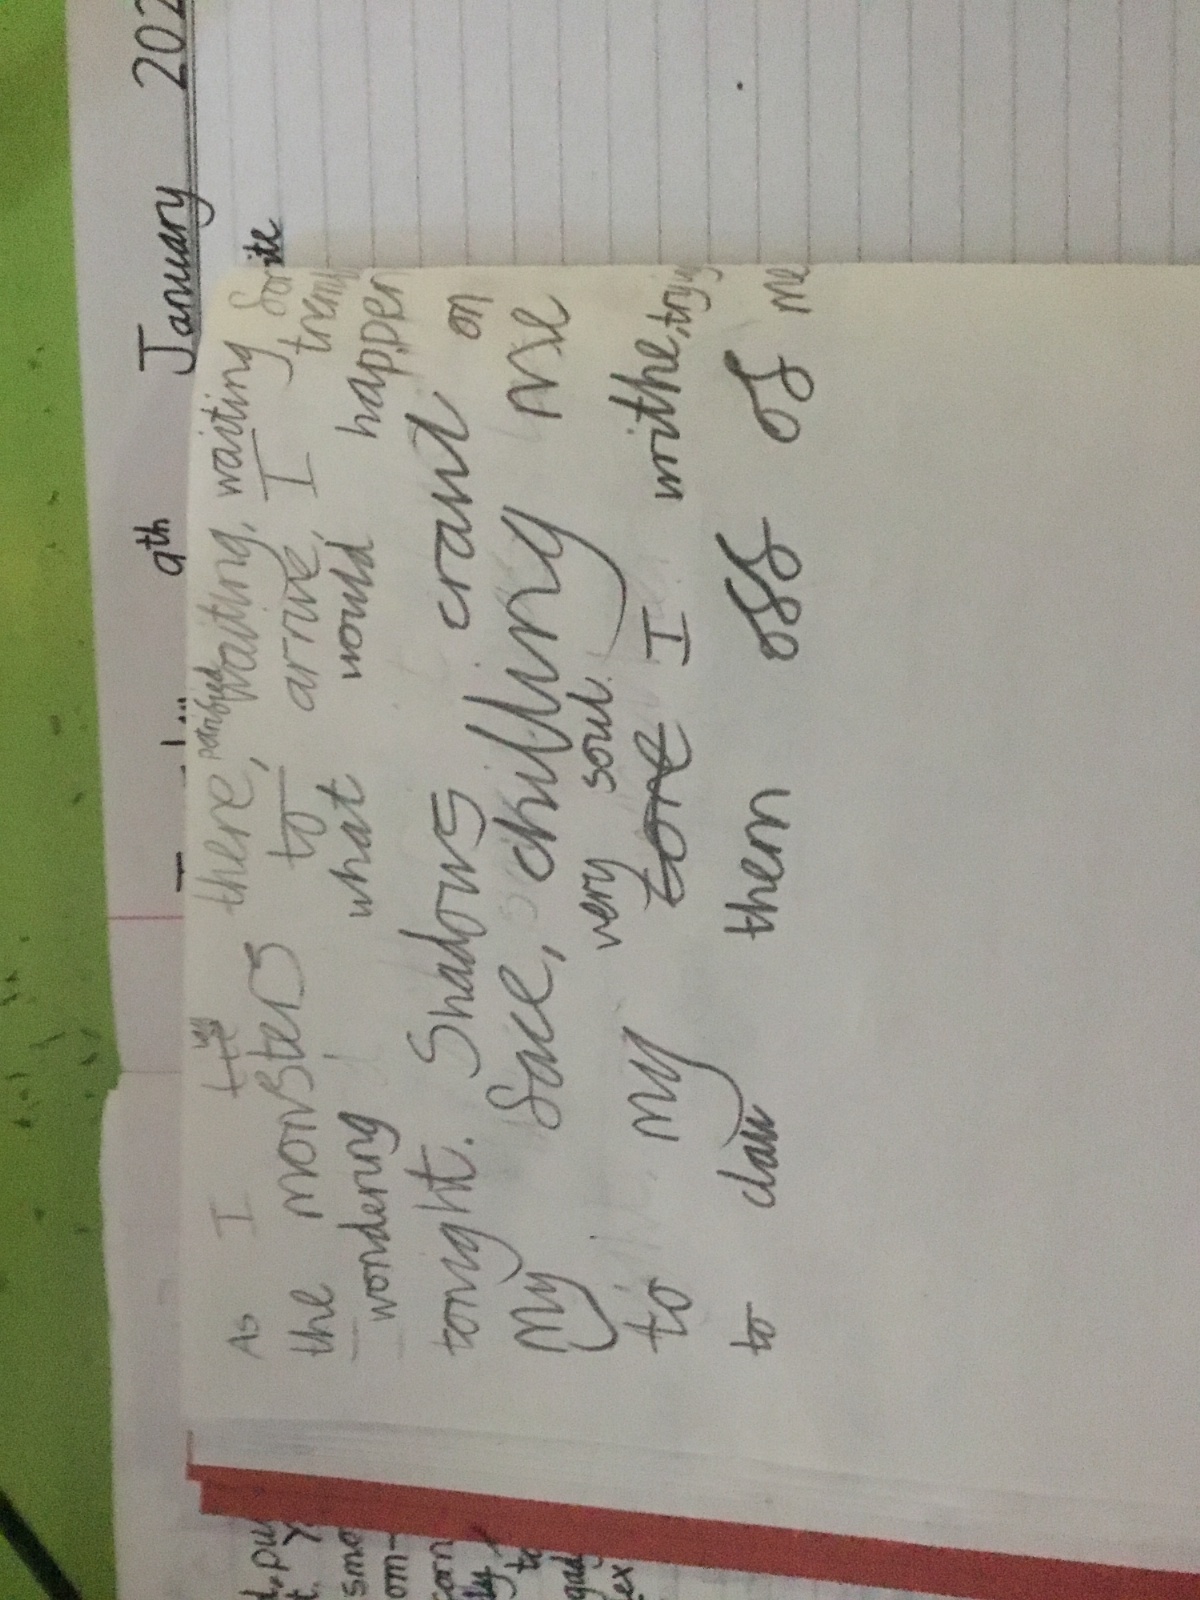 9th January 202
As I lay there, petrified waiting, waiting for
the monsters to arrive, I trem
wondering what would happen
tonight. Shadows crawl on
my face, chilling me
to my very soul. tore I writhe, trying
to claw them off of me